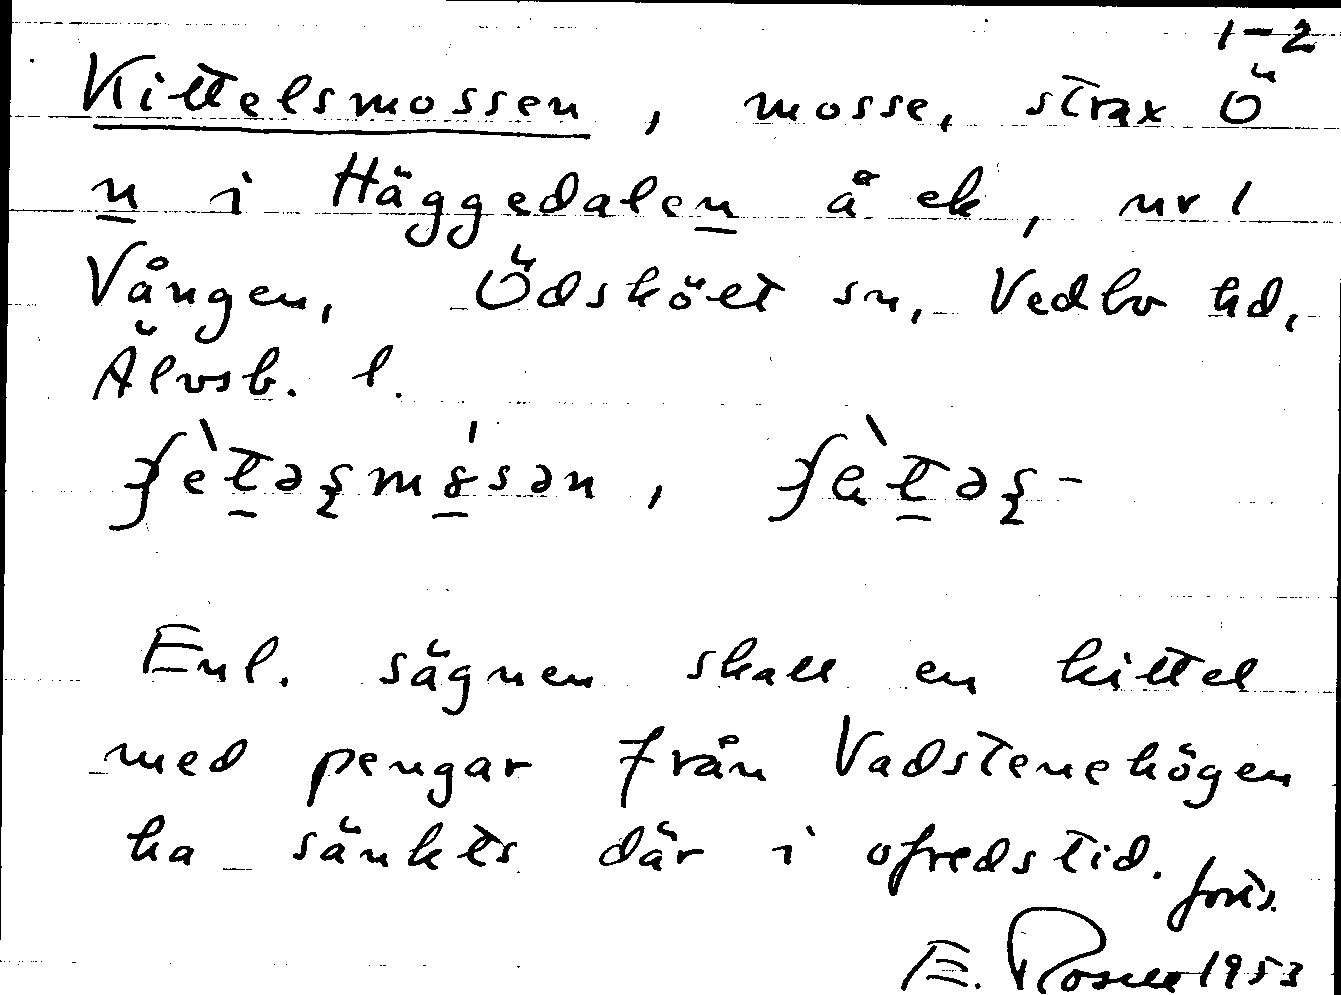 1-2
Kittelsmossen, mosse, strax Ö
n i Häggedalen å ek, nr 1
Vången, Ödsköelt sn, Vedbo hd,
Älvsb. l.
Enl. sägnen skall en kittel
med pengar från Vadstenehögen
ha sänkts där i ofredstid. forts.
E. Rosell 1953